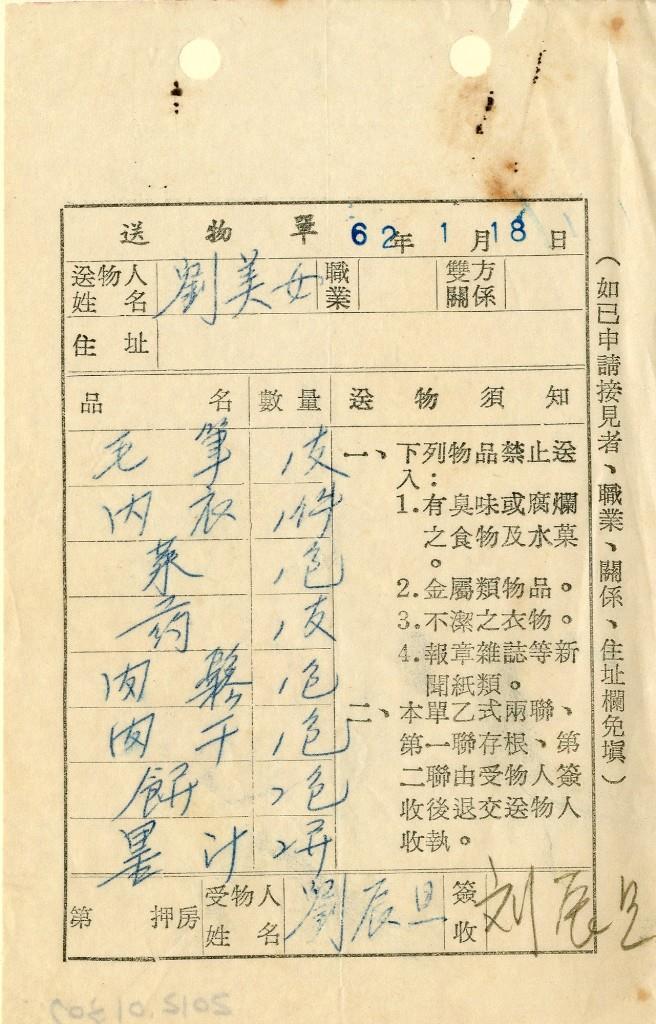 送物單 62年1月18日
送物人姓名 劉美女 職業 雙方關係
住址
品名 數量 送物須知
毛筆 1支
內衣 1件
菜 1包
药 1支
肉鬆 1包
肉干 1包
餅 2包
墨汁 2瓶
一、下列物品禁止送入：
1.有臭味或腐爛之食物及水菓。
2.金屬類物品。
3.不潔之衣物。
4.報章雜誌等新聞紙類。
二、本單乙式兩聯、第一聯存根、第二聯由受物人簽收後退交送物人收執。
第 押房 受物人姓名 劉辰旦 簽收 刘辰旦
（如已申請接見者、職業、關係、住址欄免填）
2012.01.207